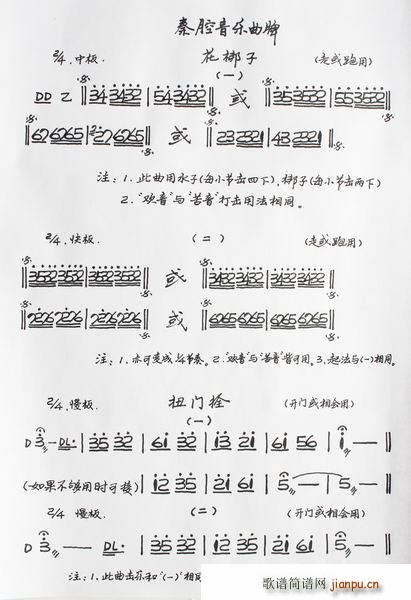 秦腔音乐曲牌
2/4. 中板. 花梆子 (走或跑用)
(一)
DD 乙 ‖34 3432 | 54 3432‖ 或 ‖35 3532 | 55 3532‖
‖62 6265 | 22 6265‖ 或 ‖23 2321 | 43 2321‖
注：1. 此曲用水子(每小节击四下)，梆子(每小节击两下)
2. "欢音"与"苦音"打击用法相同。
2/4. 快板. (二) (走或跑用)
‖3532 3532 | 3532 3532‖ 或 ‖3432 3432 | 3432 3432‖
‖2226 2226 | 2226 2226‖ 或 ‖6265 6265 | 6265 6265‖
注：1. 亦可变成 1/4 节奏。2. "欢音"与"苦音"皆可用。3. 起法与(一)相同。
2/4. 慢板. 扭门栓 (开门或相会用)
(一)
D 3 — DL· | 35 32 | 61 32 | 13 21 | 61 56 | 1 — |
(如果不够用时可接) | 12 35 | 21 61 | 5 — | 5 — |
2/4 慢板 (二) (开门或相会用)
D 3 — DL· | 35 32 | 12 35 | 21 61 | 5 — |
注：1. 此曲击乐和"(一)"相
歌谱简谱网
jianpu.cn